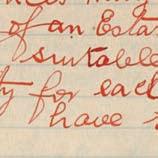 of an Esta
suitable
ty for each
have